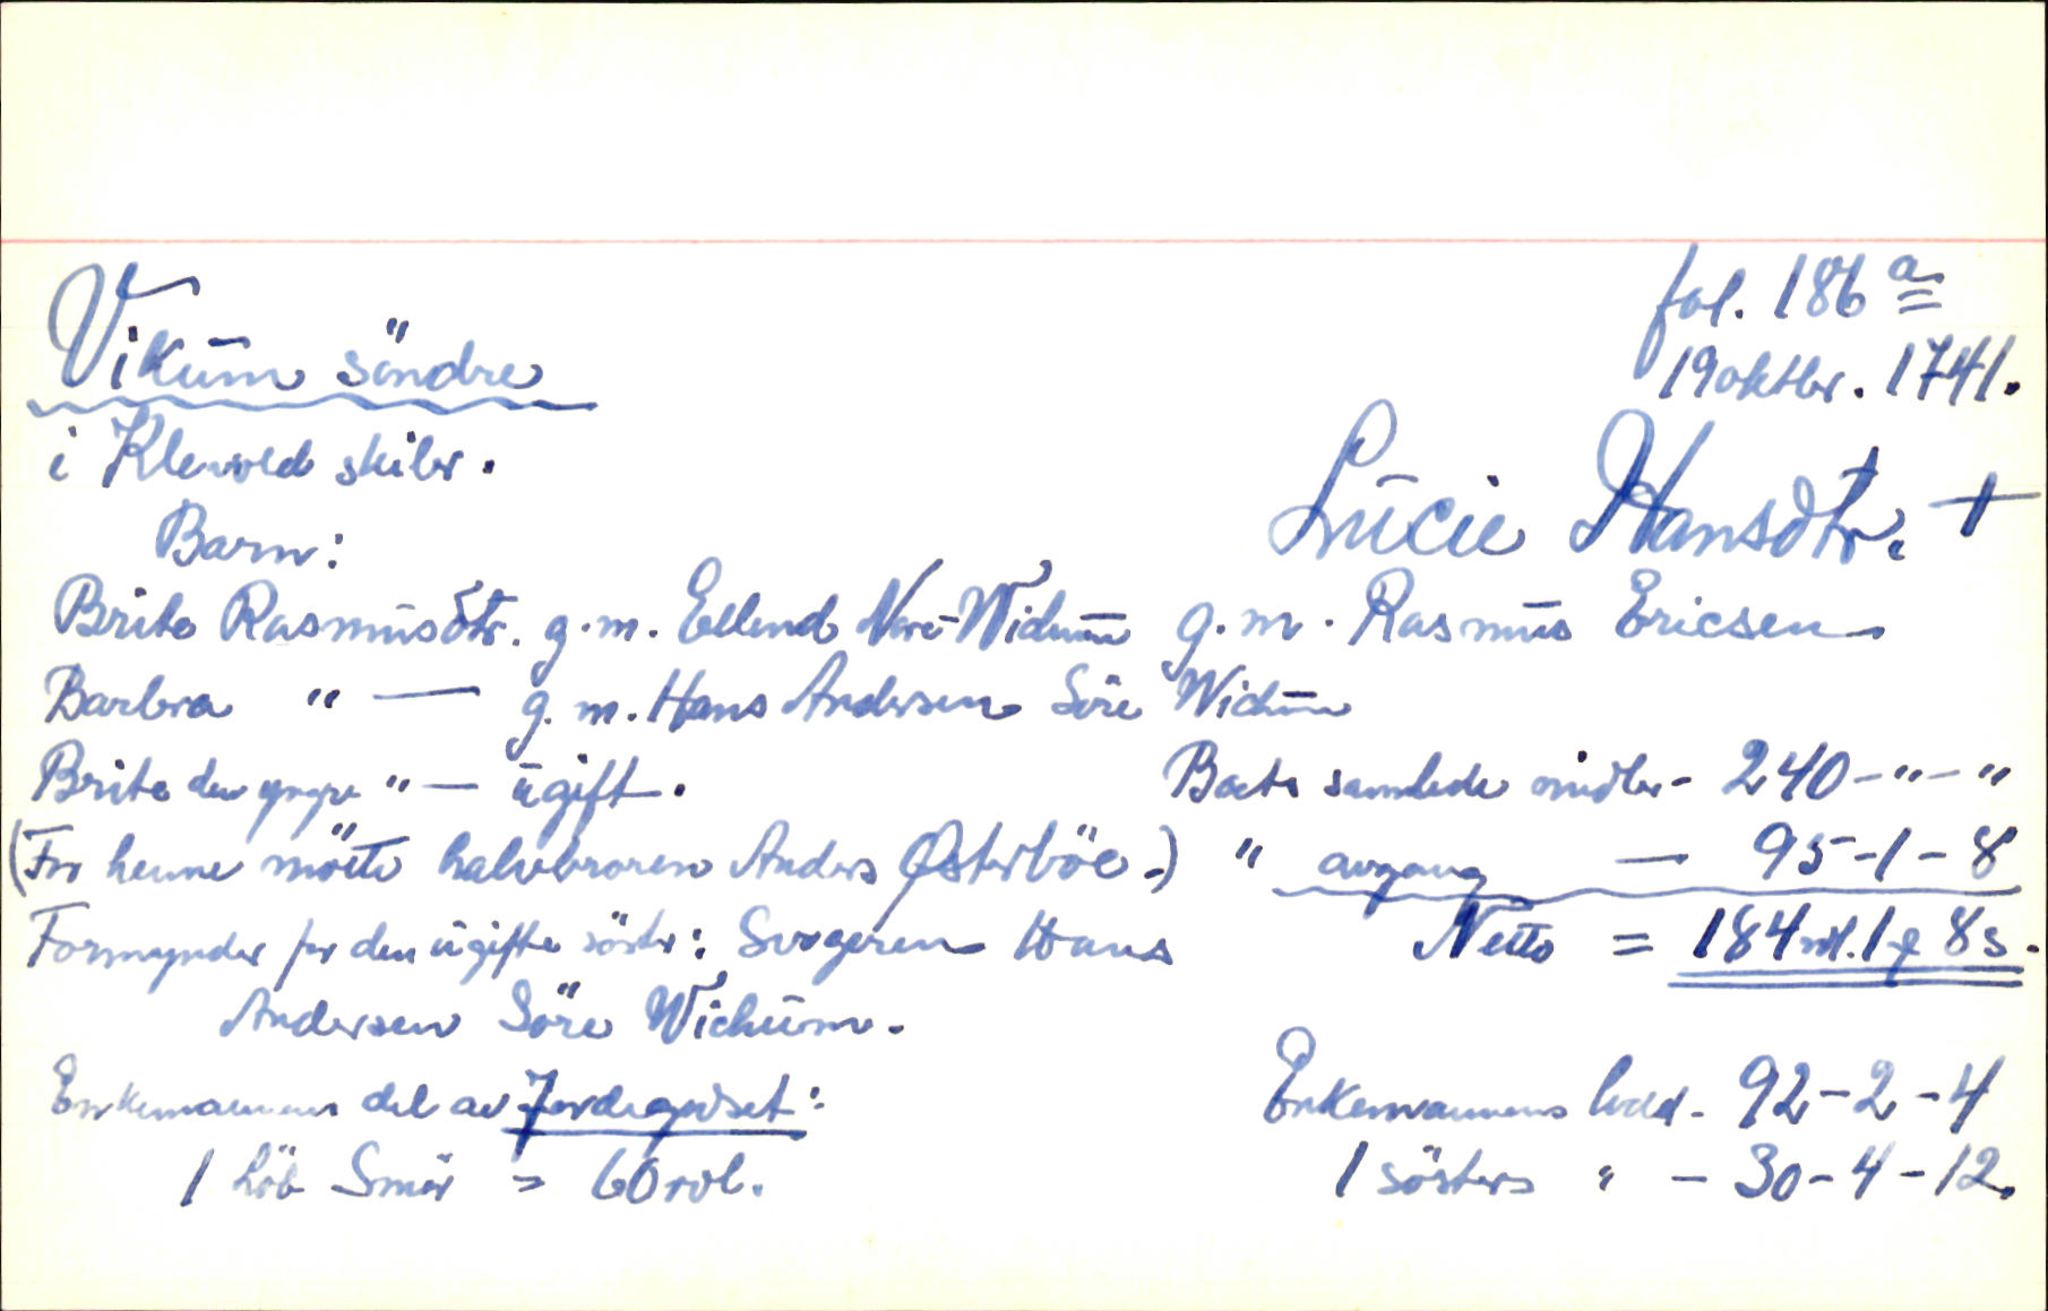 fol. 186 a
Vikum söndre
19 oktbr. 1741.
i Klewold skibr.
Lucie Hansdtr. +
Barn:
Brite Rasmusdtr. g.m. Ellend Nore-Wichum g.m. Rasmus Ericsen
Barbra " — g.m. Hans Andersen Söre Wichum
Brite den yngre " — ugift.
Boets samlede midler - 240 - " - "
(For henne mötte halvbroren Anders Østerböe.)
" avgang — 95 - 1 - 8
Formynder for den ugifte söster: Svogeren Hans
Netto = 184 rdl. 1 8 s.
Andersen Söre Wichum.
Enkemannens del av Jordegodset:
Enkemannens lodd - 92 - 2 - 4
1 löb Smör = 60 rdl.
1 sösters " - 30 - 4 - 12.